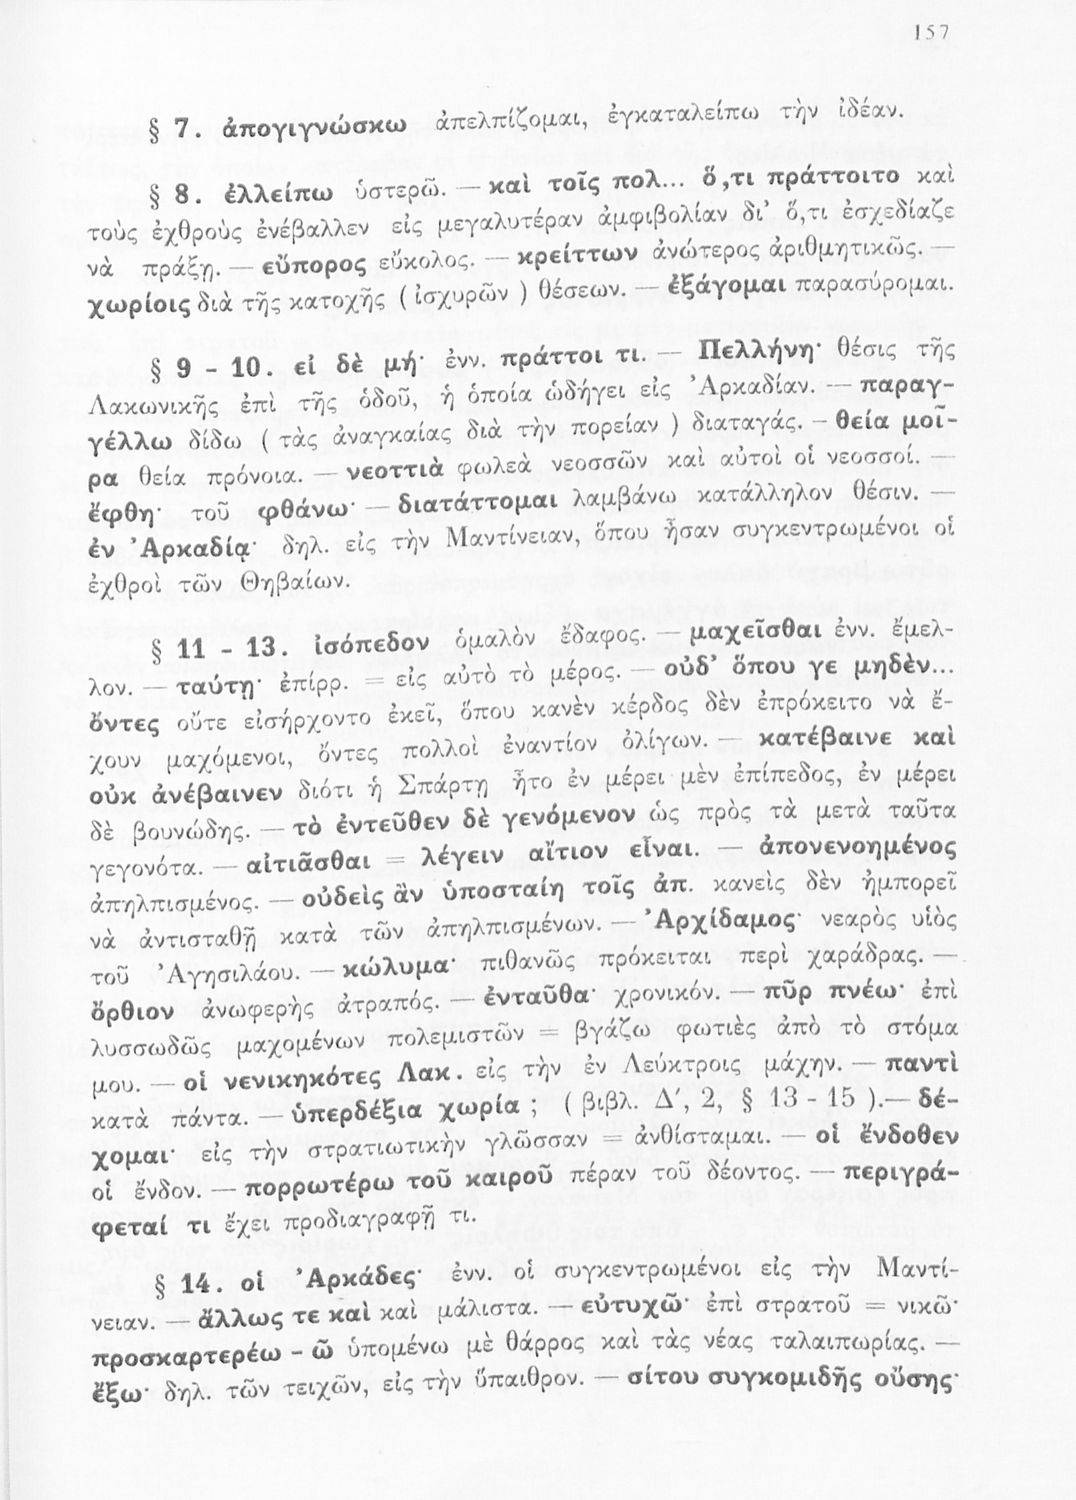 157
§ 7. ἀπογιγνώσκω ἀπελπίζομαι, ἐγκαταλείπω τὴν ἰδέαν.
§ 8. ἐλλείπω ὑστερῶ. — καὶ τοῖς πολ... ὅ,τι πράττοιτο καὶ
τοὺς ἐχθροὺς ἐνέβαλλεν εἰς μεγαλυτέραν ἀμφιβολίαν δι' ὅ,τι ἐσχεδίαζε
νὰ πράξῃ. — εὔπορος εὔκολος. — κρείττων ἀνώτερος ἀριθμητικῶς. —
χωρίοις διὰ τῆς κατοχῆς ( ἰσχυρῶν ) θέσεων. — ἐξάγομαι παρασύρομαι.
§ 9 - 10. εἰ δὲ μή· ἐνν. πράττοι τι. — Πελλήνη· θέσις τῆς
Λακωνικῆς ἐπὶ τῆς ὁδοῦ, ἡ ὁποία ὡδήγει εἰς Ἀρκαδίαν. — παραγ-
γέλλω δίδω ( τὰς ἀναγκαίας διὰ τὴν πορείαν ) διαταγάς. - θεία μοῖ-
ρα θεία πρόνοια. — νεοττιὰ φωλεὰ νεοσσῶν καὶ αὐτοὶ οἱ νεοσσοί. —
ἔφθη· τοῦ φθάνω· — διατάττομαι λαμβάνω κατάλληλον θέσιν. —
ἐν Ἀρκαδίᾳ· δηλ. εἰς τὴν Μαντίνειαν, ὅπου ἦσαν συγκεντρωμένοι οἱ
ἐχθροὶ τῶν Θηβαίων.
§ 11 - 13. ἰσόπεδον ὁμαλὸν ἔδαφος. — μαχεῖσθαι ἐνν. ἔμελ-
λον. — ταύτῃ· ἐπίρρ. = εἰς αὐτὸ τὸ μέρος. — οὐδ' ὅπου γε μηδὲν...
ὄντες οὔτε εἰσήρχοντο ἐκεῖ, ὅπου κανὲν κέρδος δὲν ἐπρόκειτο νὰ ἔ-
χουν μαχόμενοι, ὄντες πολλοὶ ἐναντίον ὀλίγων. — κατέβαινε καὶ
οὐκ ἀνέβαινεν διότι ἡ Σπάρτη ἦτο ἐν μέρει μὲν ἐπίπεδος, ἐν μέρει
δὲ βουνώδης. — τὸ ἐντεῦθεν δὲ γενόμενον ὡς πρὸς τὰ μετὰ ταῦτα
γεγονότα. — αἰτιᾶσθαι = λέγειν αἴτιον εἶναι. — ἀπονενοημένος
ἀπηλπισμένος. — οὐδεὶς ἂν ὑποσταίη τοῖς ἀπ. κανεὶς δὲν ἠμπορεῖ
νὰ ἀντισταθῇ κατὰ τῶν ἀπηλπισμένων. — Ἀρχίδαμος· νεαρὸς υἱὸς
τοῦ Ἀγησιλάου. — κώλυμα· πιθανῶς πρόκειται περὶ χαράδρας. —
ὄρθιον ἀνωφερὴς ἀτραπός. — ἐνταῦθα· χρονικόν. — πῦρ πνέω· ἐπὶ
λυσσωδῶς μαχομένων πολεμιστῶν = βγάζω φωτιὲς ἀπὸ τὸ στόμα
μου. — οἱ νενικηκότες Λακ. εἰς τὴν ἐν Λεύκτροις μάχην. — παντὶ
κατὰ πάντα. — ὑπερδέξια χωρία ; ( βιβλ. Δ', 2, § 13 - 15 ).— δέ-
χομαι· εἰς τὴν στρατιωτικὴν γλῶσσαν = ἀνθίσταμαι. — οἱ ἔνδοθεν
οἱ ἔνδον. — πορρωτέρω τοῦ καιροῦ πέραν τοῦ δέοντος. — περιγρά-
φεταί τι ἔχει προδιαγραφῇ τι.
§ 14. οἱ Ἀρκάδες· ἐνν. οἱ συγκεντρωμένοι εἰς τὴν Μαντί-
νειαν. — ἄλλως τε καὶ καὶ μάλιστα. — εὐτυχῶ· ἐπὶ στρατοῦ = νικῶ·
προσκαρτερέω - ῶ ὑπομένω μὲ θάρρος καὶ τὰς νέας ταλαιπωρίας. —
ἔξω· δηλ. τῶν τειχῶν, εἰς τὴν ὕπαιθρον. — σίτου συγκομιδῆς οὔσης·